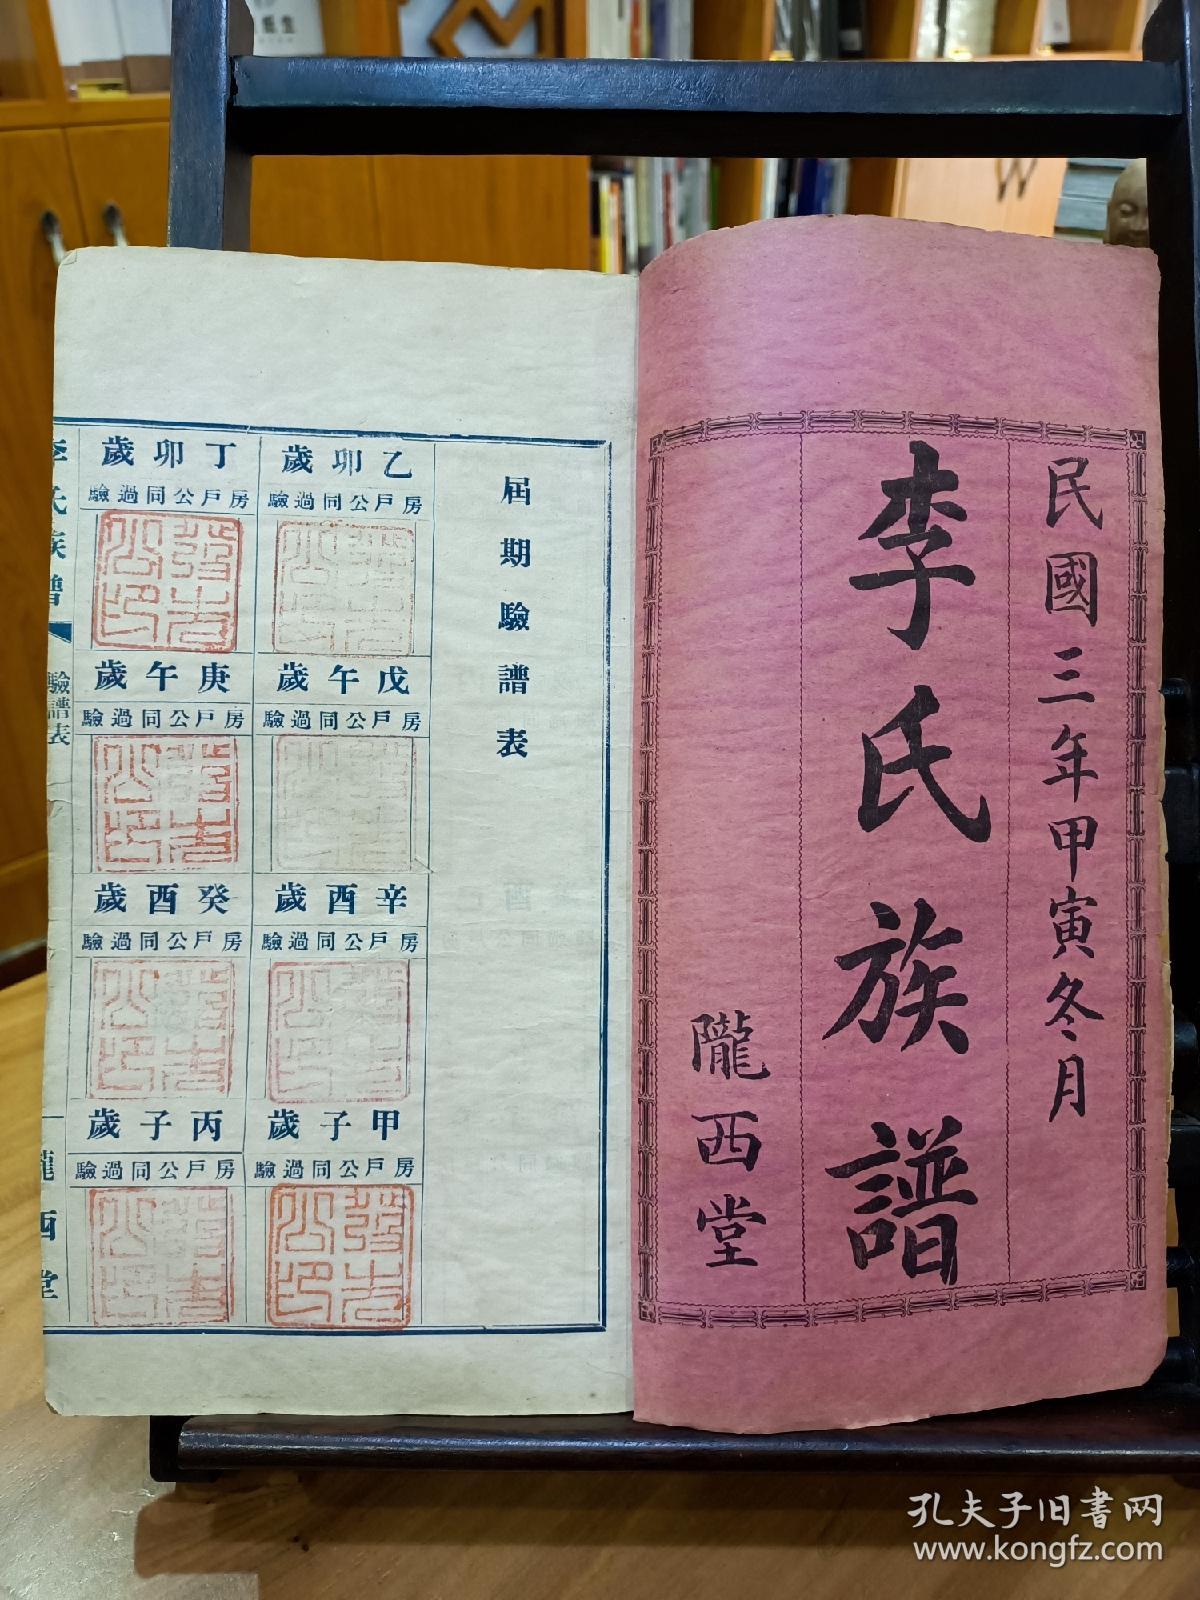 民國三年甲寅冬月
李氏族譜
隴西堂
屆期驗譜表
乙卯歲
房戶公同過驗
丁卯歲
房戶公同過驗
戊午歲
房戶公同過驗
庚午歲
房戶公同過驗
辛酉歲
房戶公同過驗
癸酉歲
房戶公同過驗
甲子歲
房戶公同過驗
丙子歲
房戶公同過驗
李氏族譜
驗譜表
隴西堂
孔夫子旧书网
www.kongfz.com